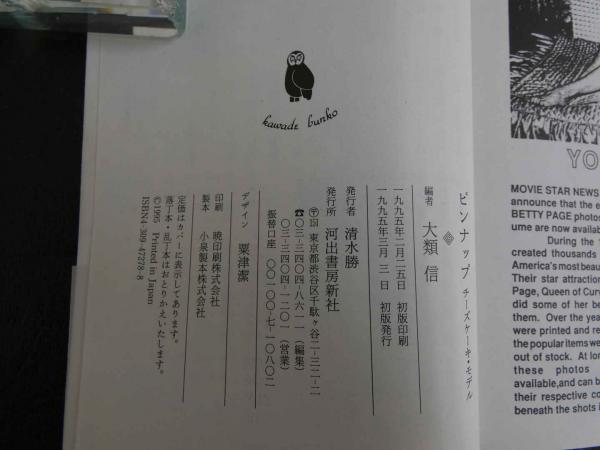 kawade bunko
ピンナップ チーズケーキ・モデル
編者 大類 信
一九九五年二月二五日 初版印刷
一九九五年三月 三 日 初版発行
発行者 清水勝
発行所 河出書房新社
〒151 東京都渋谷区千駄ヶ谷二-三二-二
☎〇三-三四〇四-八六一一(編集)
〇三-三四〇四-一二〇一(営業)
振替口座 〇〇一〇〇-七-一〇八〇二
デザイン 粟津潔
印刷 暁印刷株式会社
製本 小泉製本株式会社
定価はカバーに表示してあります。
落丁本・乱丁本はおとりかえいたします。
©1995 Printed in Japan
ISBN4-309-47278-8
YO
MOVIE STAR NEWS
announce that the e
BETTY PAGE photos
ume are now available
During the
created thousands
America's most beau
Their star attraction
Page, Queen of Cur
did some of her be
them. Over the yea
were printed and re
the popular items we
out of stock. At lon
these photos
available,and can b
their respective co
beneath the shots i